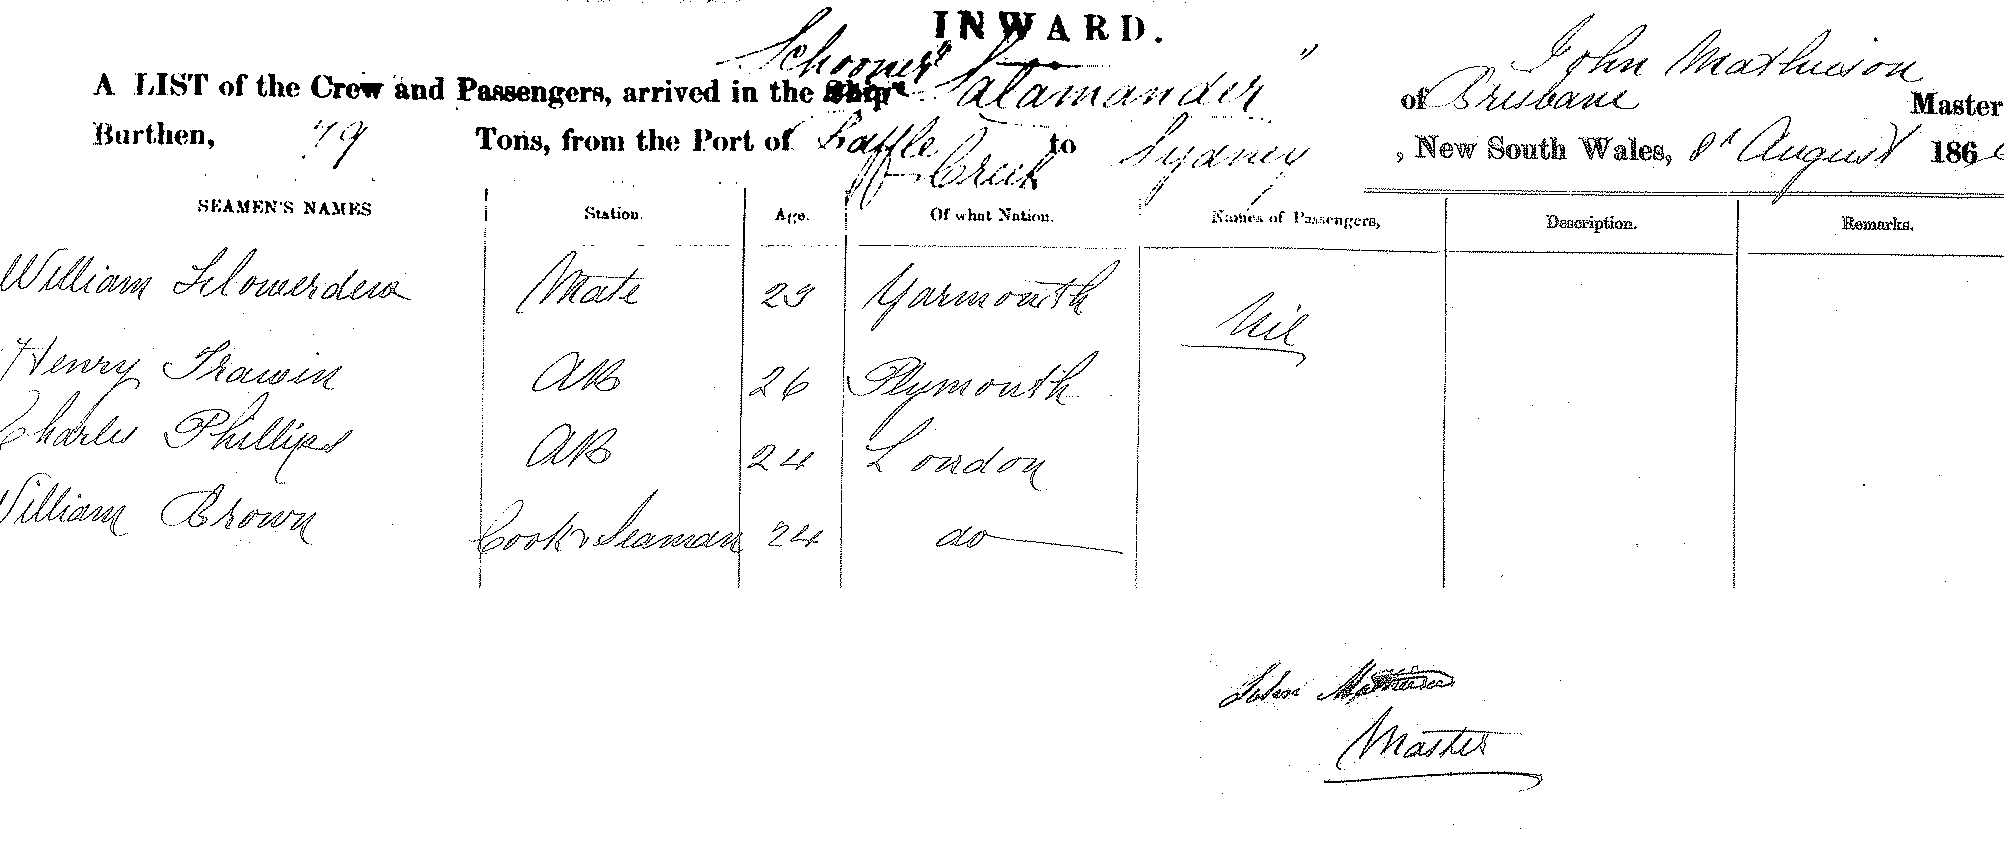 INWARD.
Schooner
John Mathieson
A LIST of the Crew and Passengers, arrived in the Ship "Salamander" of Brisbane Master
Burthen, 79 Tons, from the Port of Baffle Creek to Sydney , New South Wales, 8t August 186
SEAMEN'S NAMES Station. Age. Of what Nation. Names of Passengers, Description. Remarks.
William Mate 29 Yarmouth Nil
Henry Trawin AB 26 Plymouth
Charles Phillips AB 24 London
William Brown Cook & Seaman 24 do
John
Master